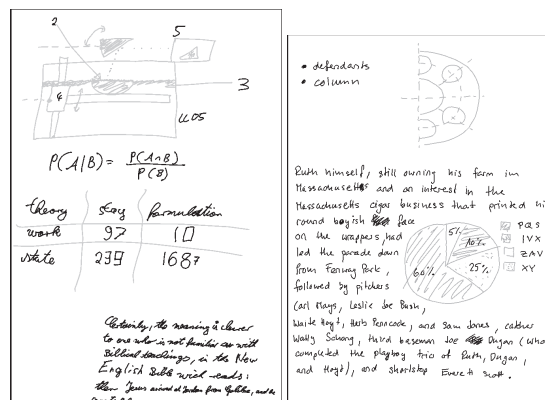 2
5
3
4
4.05
P(A|B) = P(A∩B) / P(B)
theory story formulation
work 97 10
state 239 1687
Certainly, the meaning is clearer
to one who is not familiar as with
Biblical teachings, in the New
English Bible wich reads:
then Jesus arrived at Jordan from Galilee, and
• defendants
• column
Ruth himself, still owning his farm in
Massachusetts and an interest in the
Massachusetts cigar business that printed hi
round boyish face
on the wrappers, had
led the parade down
from Fenway Park,
followed by pitchers
Carl Mays, Leslie Joe Bush,
Waite Hoyt, Herb Pennock, and Sam Jones, catcher
Wally Schang, third baseman Joe Dugan (who
completed the playboy trio of Ruth, Dugan,
and Hoyt), and shortstop Everett Scott.
5%
10%
25%
60%
PQS
IVX
ZAV
XY